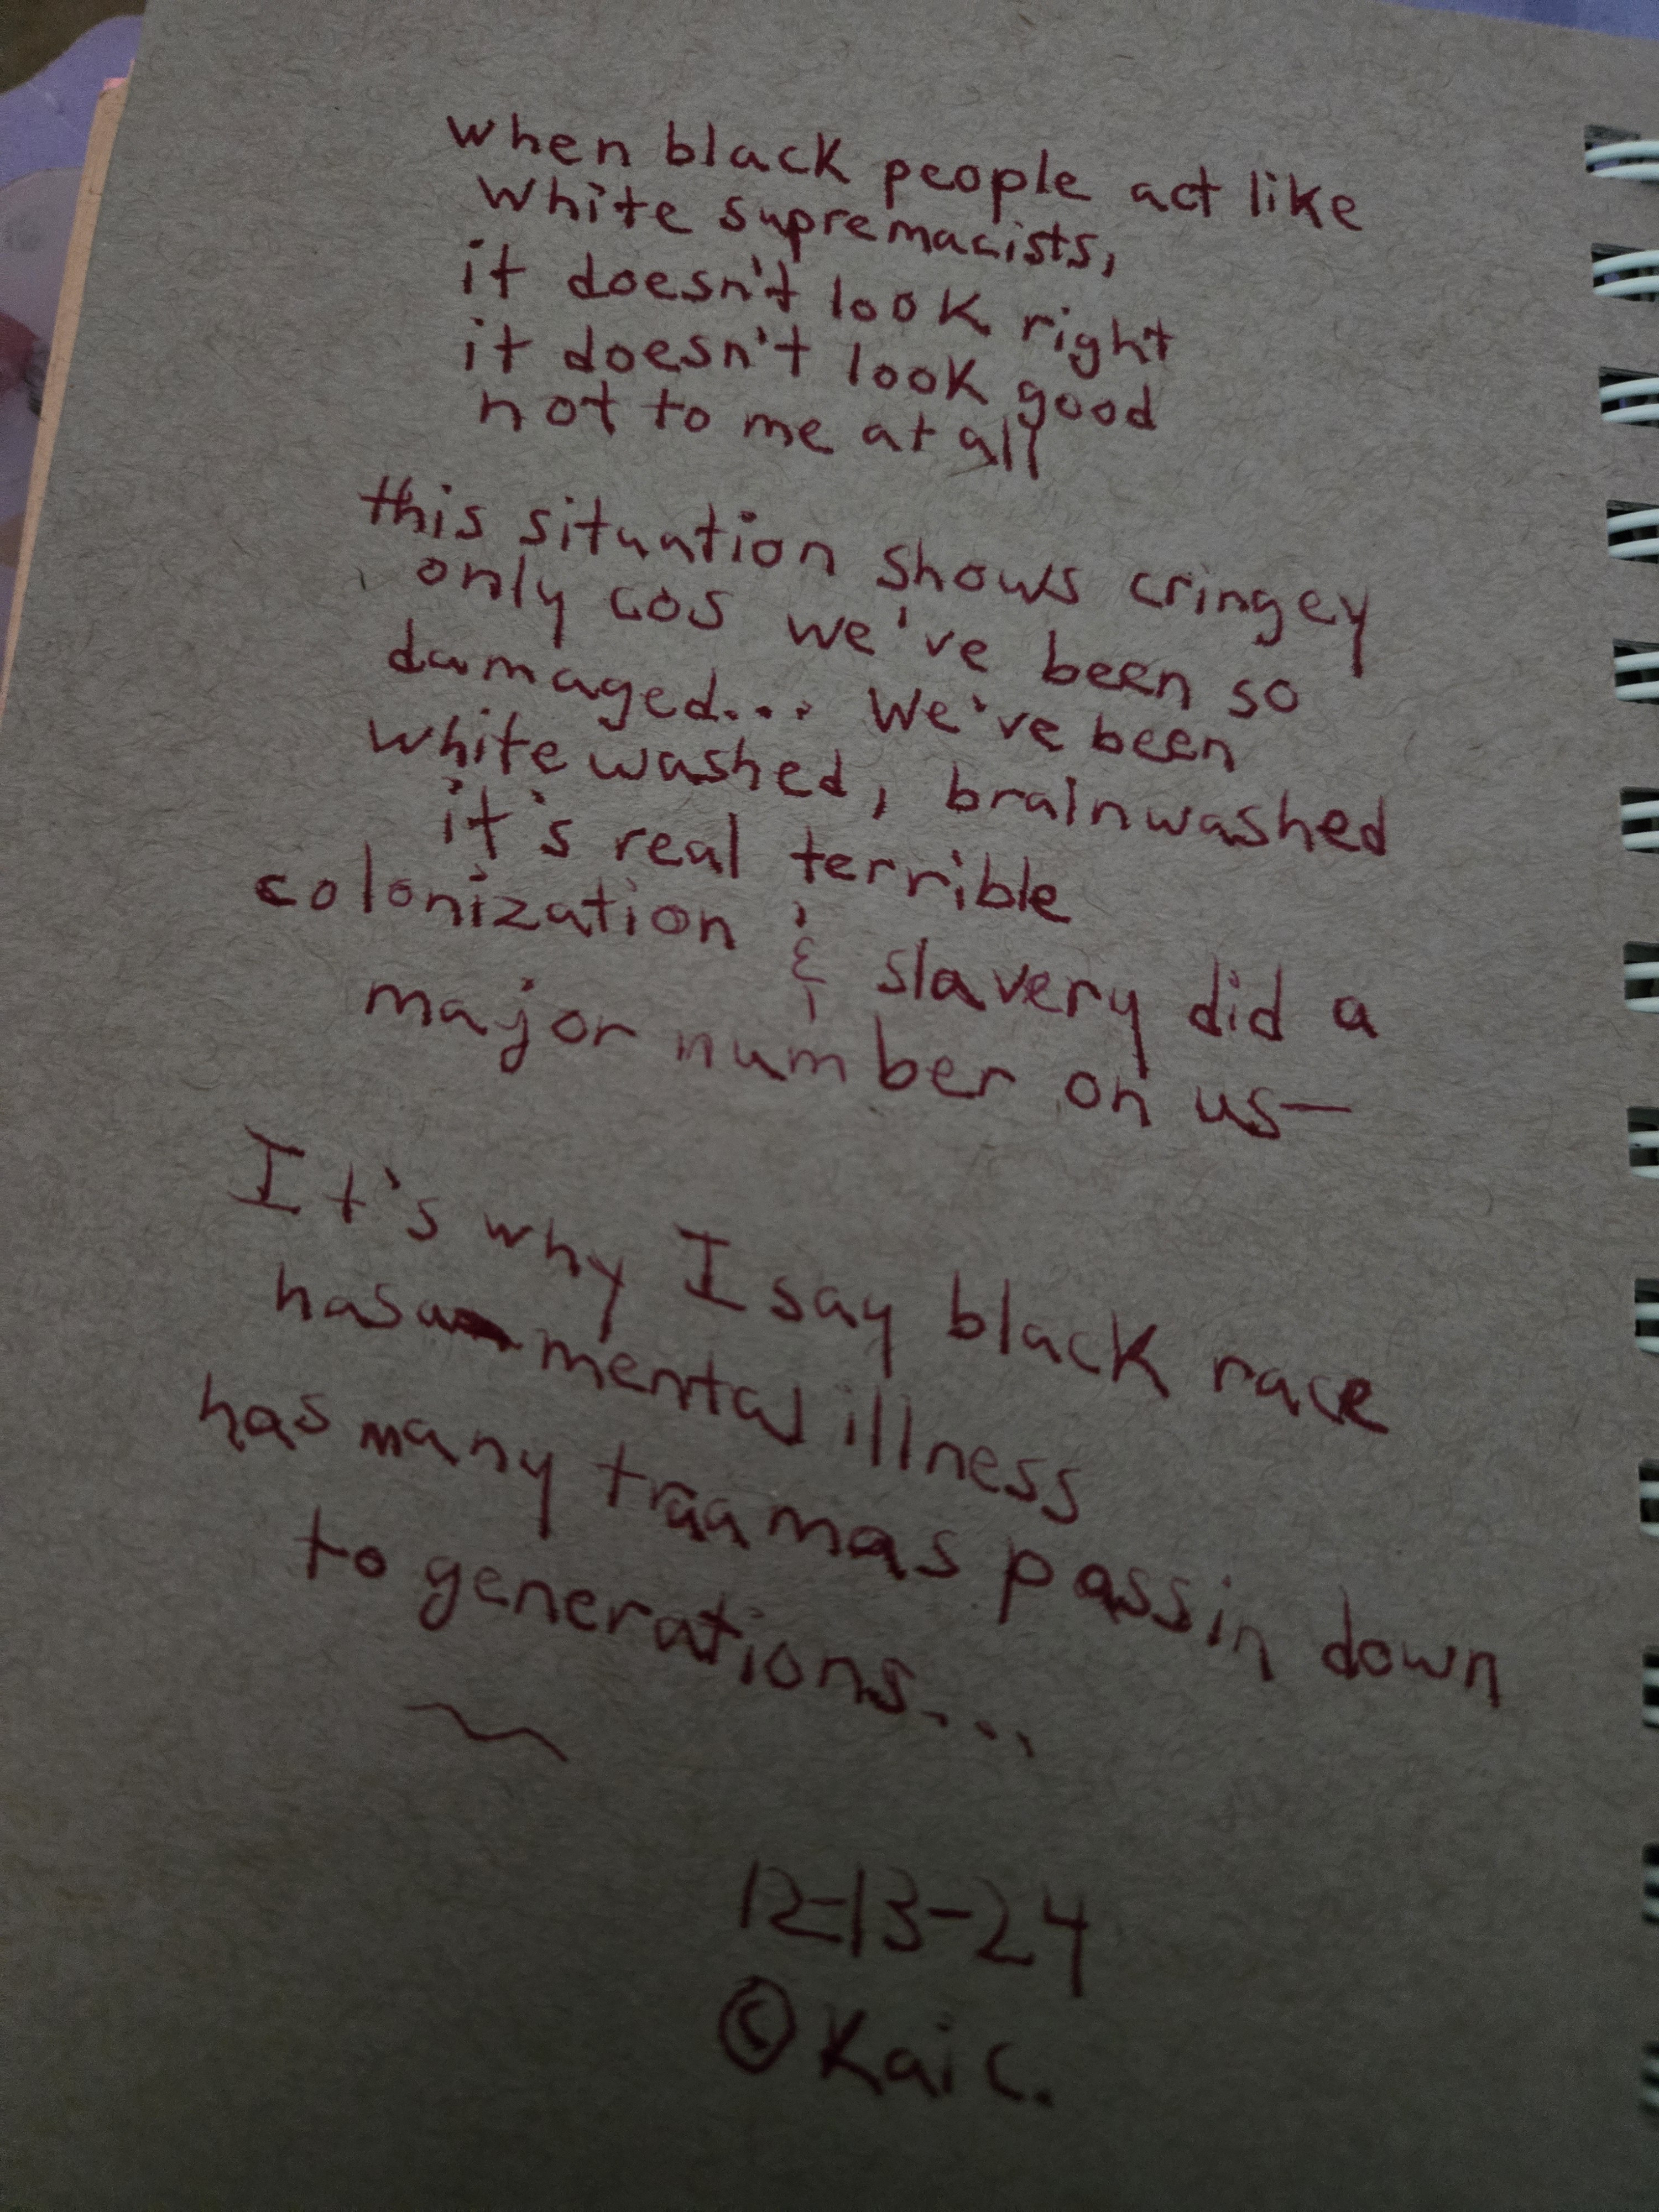 when black people act like
white supremacists,
it doesn't look right
it doesn't look good
not to me at all
this situation shows cringey
only cos we've been so
damaged... We've been
white washed, brainwashed
it's real terrible
colonization & slavery did a
major number on us—
It's why I say black race
has mental illness
has many traumas passin down
to generations...
12-13-24
© Kai C.